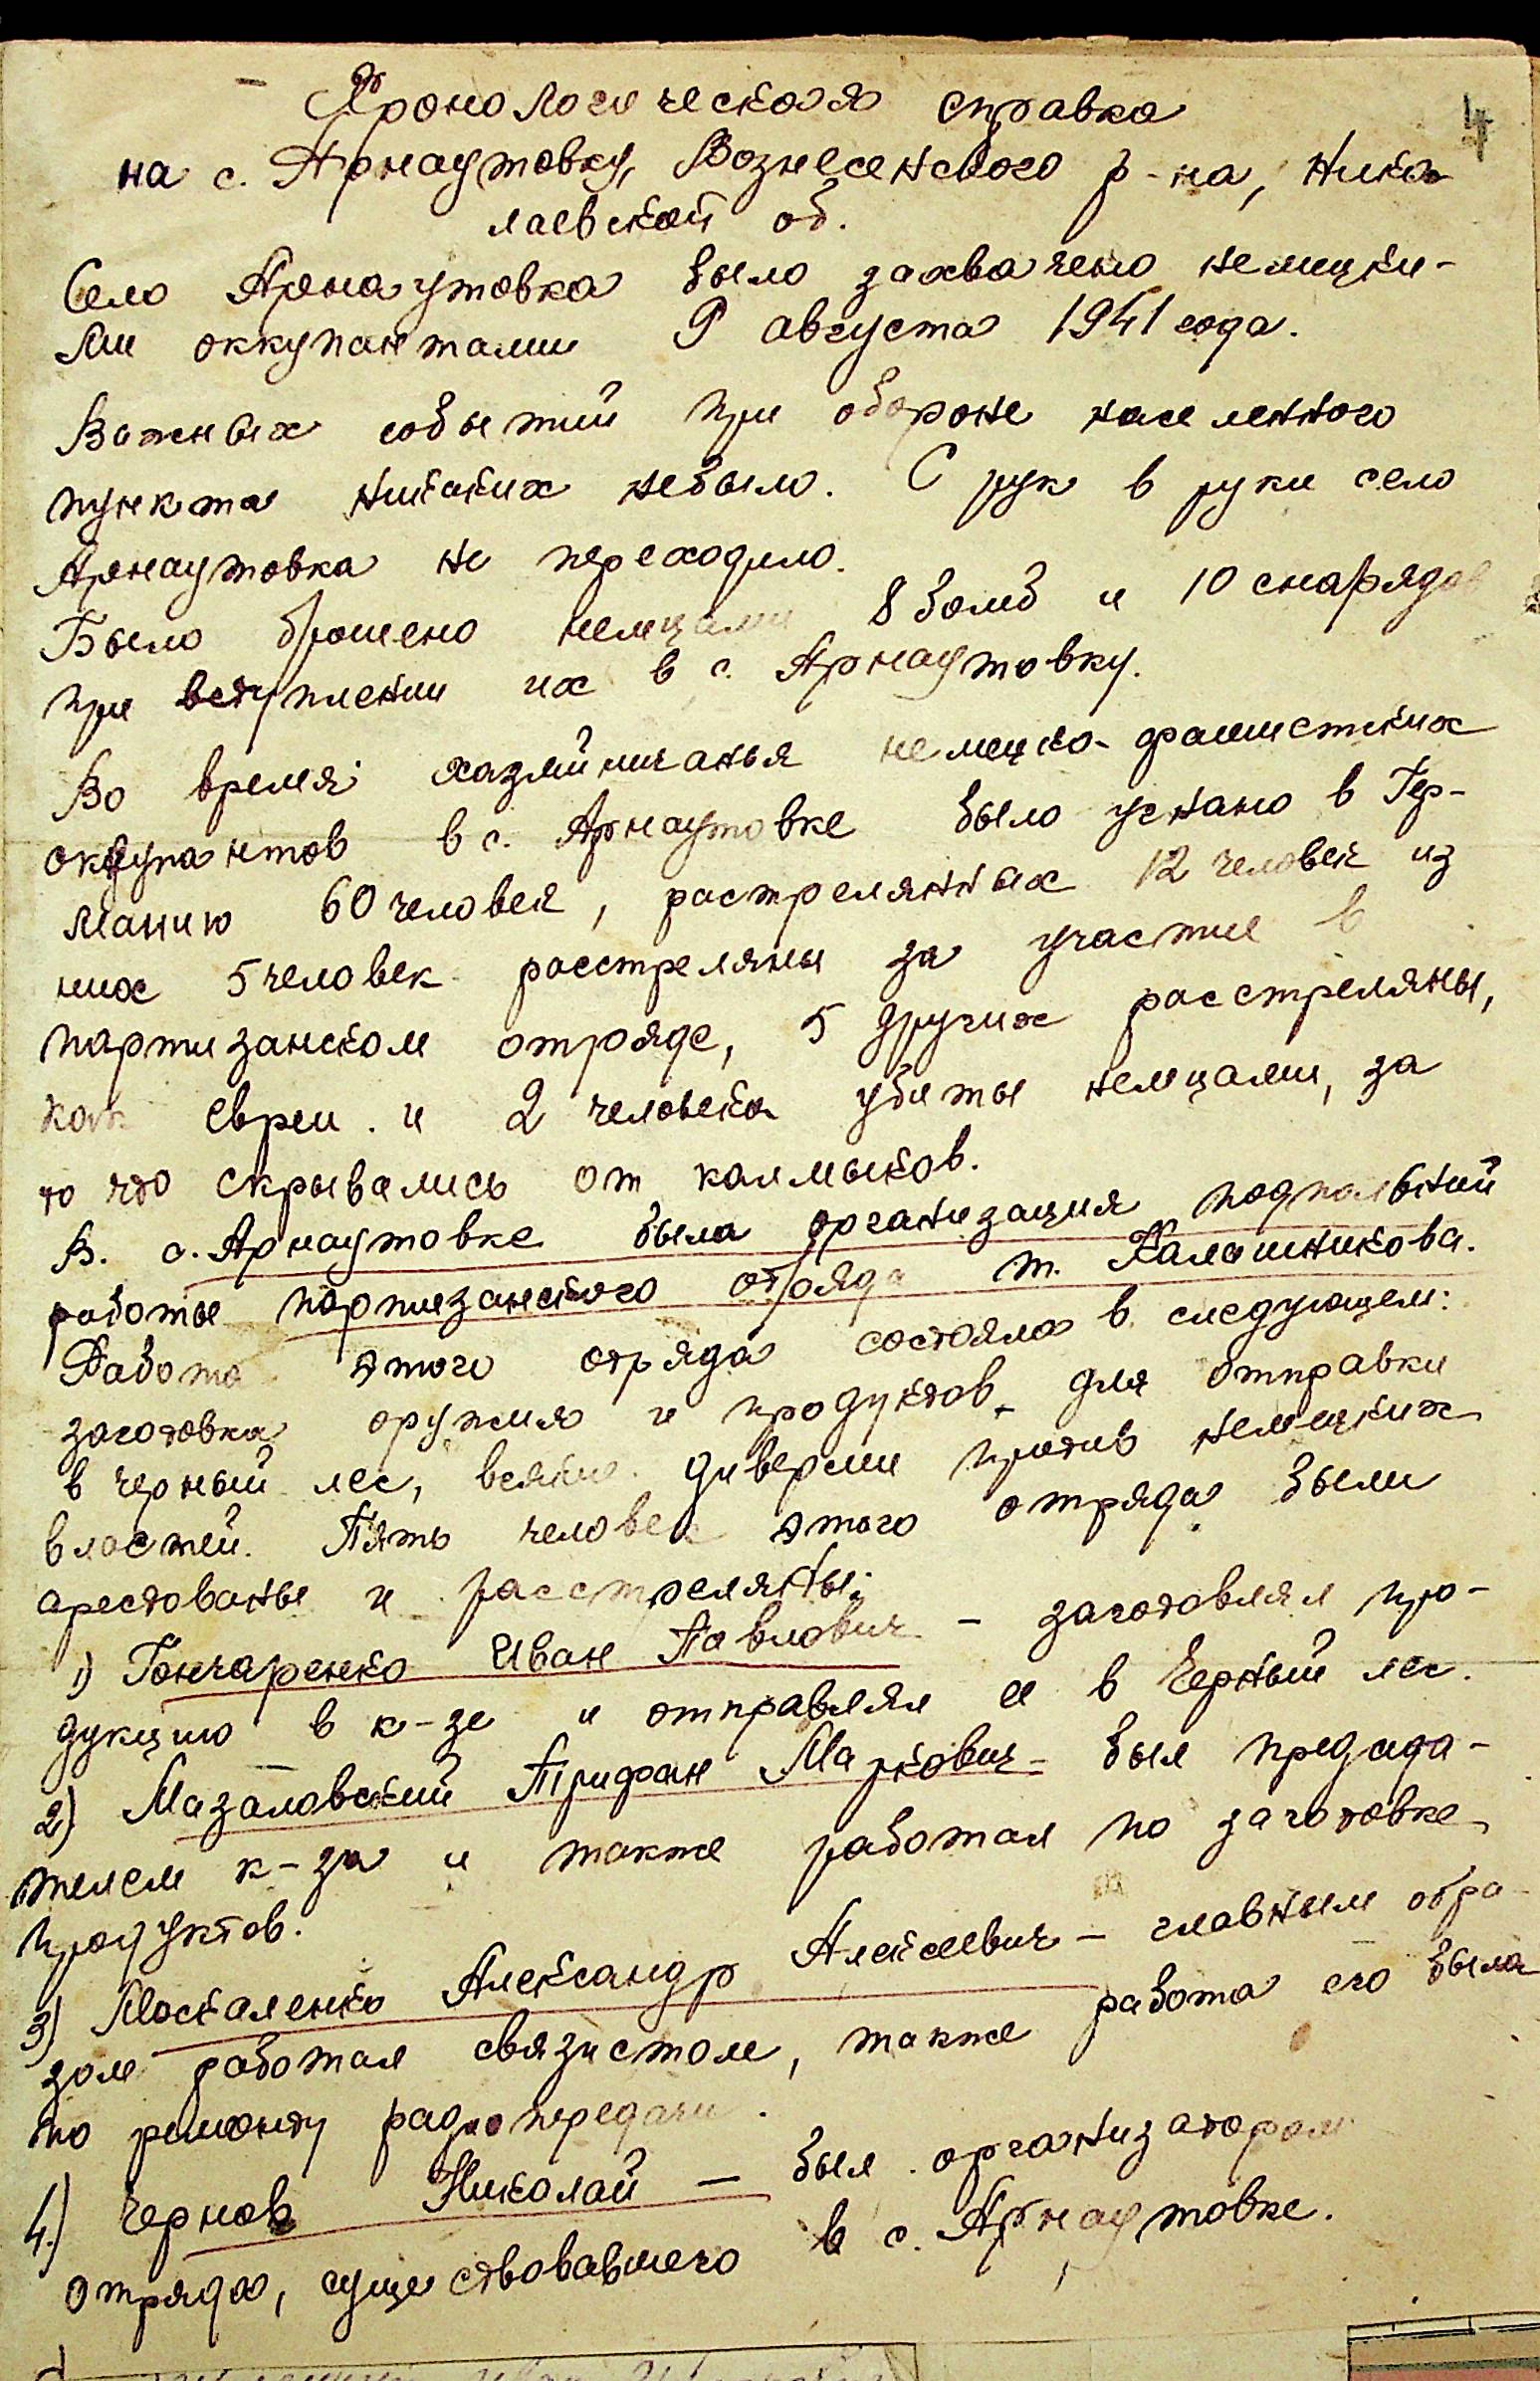 4
Хронологическая справка
на с. Арнаутовку, Вознесенского р-на, Нико-
лаевской об.
Село Арнаутовка было захвачено немецки-
ми оккупантами 9 августа 1941 года.
Важных событий при обороне населенного
пункта никаких небыло. С рук в руки село
Арнаутовка не переходило.
Было брошено немцами 8 бомб и 10 снарядов
при вступлении их в с. Арнаутовку.
Во время хазяйничанья немецко-фашистких
оккупантов в с. Арнаутовке было угнано в Гер-
манию 60 человек, растрелянных 12 человек из
них 5 человек расстреляны за участие в
партизанском отряде, 5 других расстреляны,
как евреи и 2 человека убиты немцами, за
то что скрывались от калмыков.
В. с. Арнаутовке была организация подпольний
работы партизанского отряда т. Калашникова.
Работа этого отряда состояла в следующем:
заготовка оружия и продуктов для отправки
в черный лес, всякие диверсии против немецких
властей. Пять человек этого отряда были
арестованы и расстреляны:
1) Гончаренко Иван Павлович - заготовлял про-
дукцию в к-зе и отправлял ее в Черный лес.
2) Мазаловский Трифан Маркович - был председа-
телем к-за и также работал по заготовке
продуктов.
3) Москаленко Александр Алексеевич - главным обра-
зом работал связистом, также работа его была
по ремонту радиопередачи.
4.) Чернов Николай - был организатором
отряда, существовавшего в с. Арнаутовке.